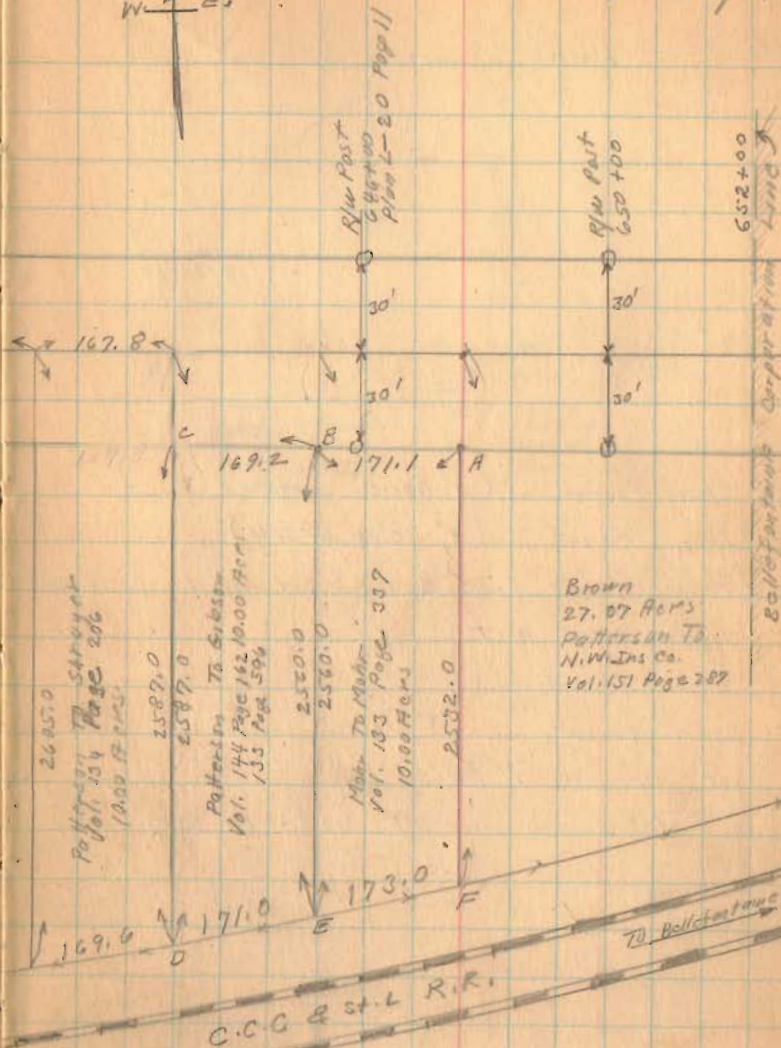 W. E.
R/W Post
646+00
Plan L-20 Page 11
R/W Post
650+00
652+00
Bellefontaine Corporation Line
30'
30'
167.8
30'
30'
C
B
A
169.2
171.1
2605.0
Patterson To Strayer
Vol. 134 Page 206
10.00 Acres
2587.0
2587.0
Patterson To Gibson
Vol. 144 Page 162 10.00 Acrs
133 Page 596
2560.0
2560.0
Mohr To Mohr
Vol. 133 Page 337
10.00 Acers
2532.0
Brown
27.07 Acrs
Patterson To
N.W. Ins Co.
Vol. 151 Page 287
169.6
D
171.0
E
173.0
F
To Bellefontaine
C.C.C & St. L R.R.